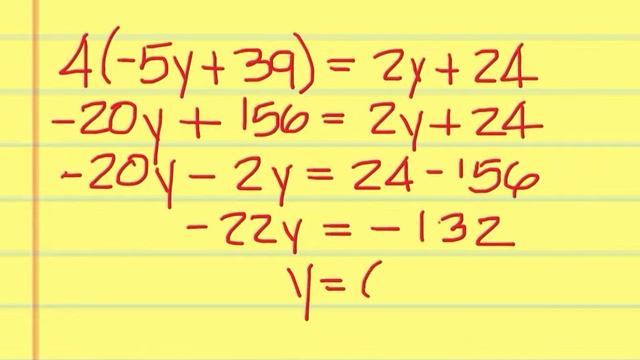 4(-5y+39) = 2y+24
-20y + 156 = 2y+24
-20y - 2y = 24-156
-22y = -132
y = (